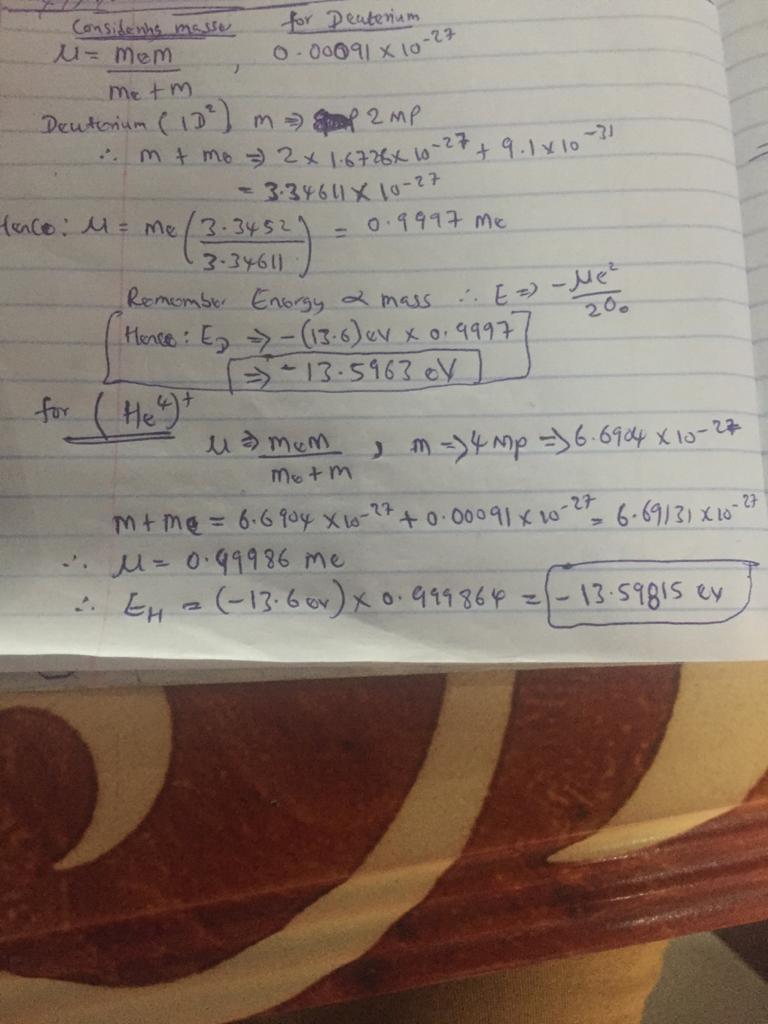 Considering masses for Deuterium
μ = mem / me + m , 0.00091 × 10^-27
Deuterium (1D^2) m ⇒ 2 mp
∴ m + me ⇒ 2 × 1.6726 × 10^-27 + 9.1 × 10^-31
= 3.34611 × 10^-27
Hence: μ = me (3.3452 / 3.34611) = 0.9997 me
Remember Energy ∝ mass ∴ E ⇒ -μe^2 / 2a0
Hence: ED ⇒ -(13.6) eV × 0.9997
⇒ -13.5963 eV
for (He^4)^+
μ ⇒ mem / me + m , m ⇒ 4 mp ⇒ 6.6904 × 10^-27
m + me = 6.6904 × 10^-27 + 0.00091 × 10^-27 = 6.69131 × 10^-27
∴ μ = 0.99986 me
∴ EH = (-13.6 ev) × 0.999864 = -13.59815 ev